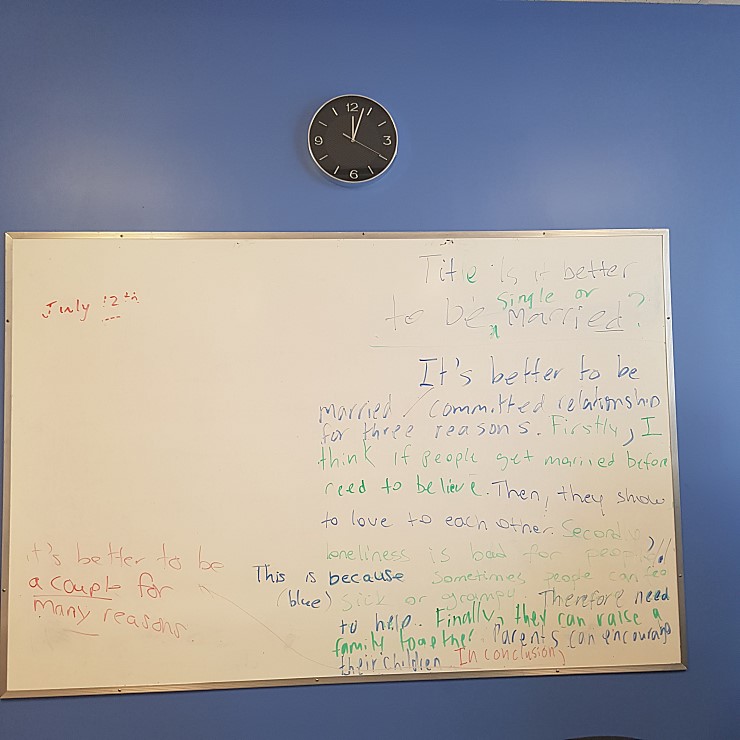 12
3
6
9
July 12th
Title Is it better
single or
to be married?
It's better to be
married / committed relationship
for three reasons. Firstly, I
think if people get married before
need to believe. Then, they show
to love to each other. Secondly,
loneliness is bad for people
This is because sometimes people can feel
(blue) sick or grumpy. Therefore need
to help. Finally, they can raise a
family together Parents can encourage
their children In conclusion,
it's better to be
a couple for
many reasons.